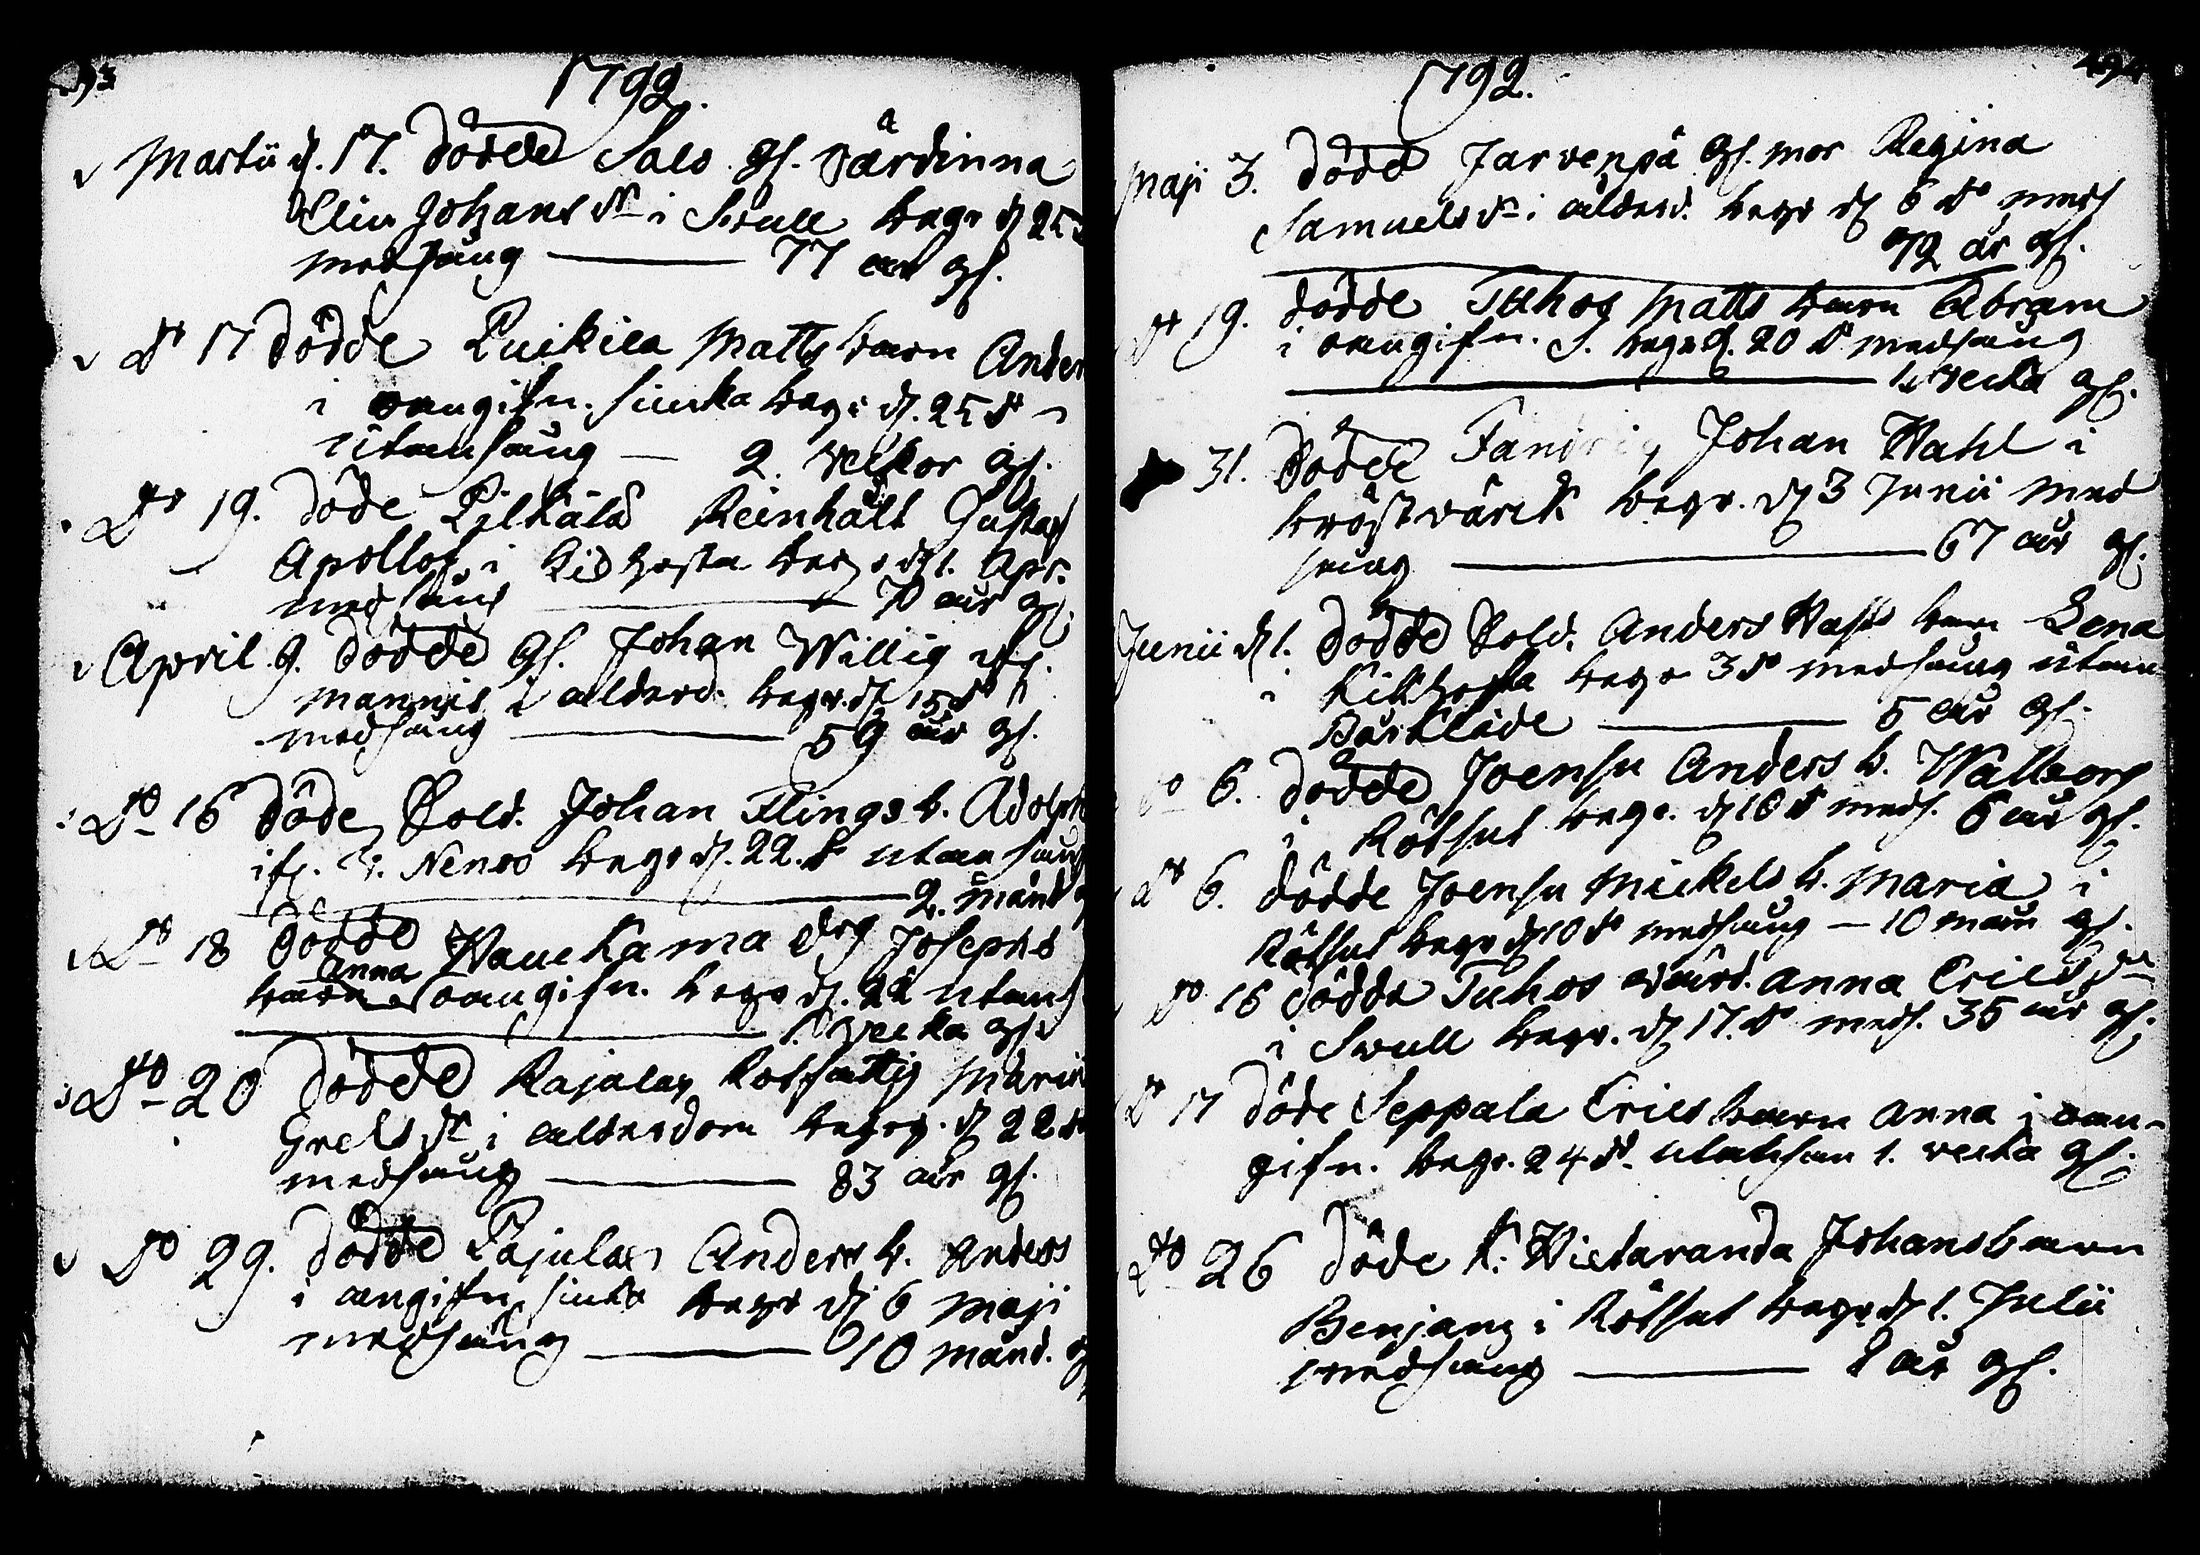 1792.
Martii d. 17. dödde Salo gl. värdinna
Elin Johans dr i Swull begr d 25
medsång 77 åhr gl.
do 17 dödde Luikila Matts barn Anders
i oangifn. siuka begr d. 25 do
utansång 2. veckor gl.
do 19. döde Reinholt Gustaf
Apollof i begr d 1. Apr.
medsång 70 åhr gl.
April 9. dödde gl. Johan Willig
mannis i ålderd. begr d 15 do
medsång 59 åhr gl.
do 16 döde Sold. Johan Flings b. Adolph
begr d. 22. do utansång
2. månd
do 18 dödde Wauckama Josephs
barn Anna oangifn. begr d. 22 utans
1. vecka gl.
do 20 dödde Rajalax Maria
Grels dr i ålderdom begr. d 22 do
medsång 83 åhr gl.
do 29. dödde Pajulax Anders b. Anders
i oangifn siuka begr d 6 Maji
medsång 10 månd. gl
1792.
Maji 3. dödde Jarvenpä gl. mor Regina
Samuels dr i ålderd. begr d 6 do meds
72 år gl.
do 19. dödde Tuhos Matts barn Abram
i oangifn. S. begr d. 20 do medsång
1. vecka gl.
31. Dödde Fandrig Johan Wahl i
bröstvärck begr. d 3 Junii med
sång 67 åhr gl.
Junii d 1. dödde Sold. Anders barn Lena
i Kikhosta begr 3 do medsång utan
Bårkläde 5 åhr gl.
do 6. dödde Joensu Anders b. Walborg
i Rötsut begr. d 10 do meds. 6 åhr gl.
do 6. dödde Joensu Mickels b. Maria i
Rötsut begr d 10 do medsång 10 mån gl.
do 16 dödde Tuhos värd. Anna Erics dr
i Swull begr. d 17. do meds. 36 åhr gl.
do 17 döde Seppala Erics barn Anna i oan-
gifn. begr. 24 do. utansån 1. vecka gl.
do 26 döde K. Wietaranda Johans barn
Benjam i Rötsut begr d 1. Julii
medsång åhr gl.